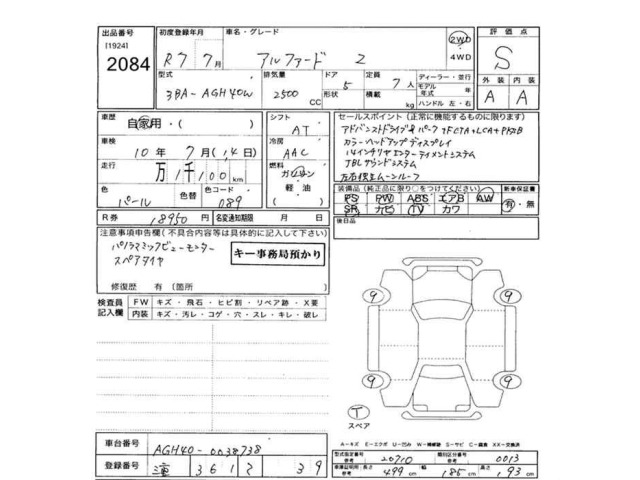 出品番号
[1924]
2084
初度登録年月
R7 7月
車名・グレード
アルファード Z
2WD
4WD
評価点
S
型式
3BA-AGH40W
排気量
2500 CC
ドア
形状
5
定員
積載
7人
kg
ディーラー・並行
モデル年式 年
ハンドル 左・右
外装 内装
A A
車歴
自家用・( )
車検
10年 7月(14日)
走行
万 1千100 km
色
パール
色替
色コード
089
シフト
AT
冷房
AAC
燃料
ガソリン
軽油
( )
セールスポイント(正常に機能するものに限ります)
カラーヘッドアップディスプレイ
14インチリヤエンターテイメントシステム
JBLサウンドシステム
左右独立ムーンルーフ
装備品(純正品に限り○をつけてください)
PS PW ABS エアB AW
SR カビ TV カワ
新車保証書
有・無
R券
18950円
名変通知期限 月 日
後日品
注意事項申告欄(不具合内容等は具体的に記入して下さい)
パノラミックビューモニター
スペアタイヤ
キー事務局預かり
修復歴 有(箇所 )
検査員
記入欄
FW キズ・飛石・ヒビ割・リペア跡・X要
内装 キズ・汚レ・コゲ・穴・スレ・キレ・破レ
9 9
9 9
T
スペア
A-キズ E-エクボ U-凹み W-補修跡 S-サビ C-腐食 XX-交換済
車台番号
AGH40-0038738
登録番号
361 39
型式指定番号
参考
20710
類別区分番号
参考
0013
車庫証明用・長さ
参考
499 cm
幅
185 cm
高さ
193 cm